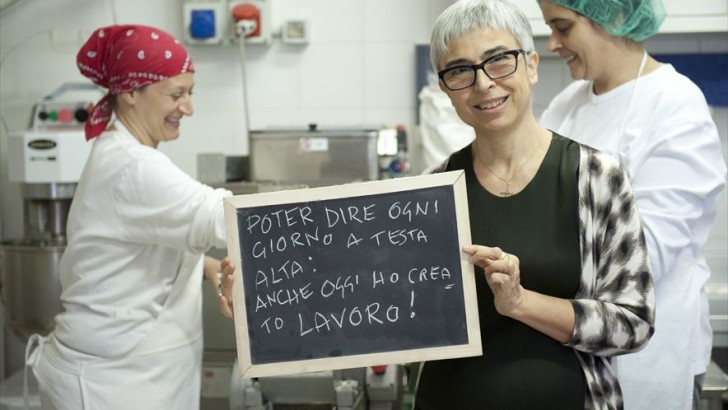 POTER DIRE OGNI
GIORNO A TESTA
ALTA:
ANCHE OGGI HO CREA
TO LAVORO!